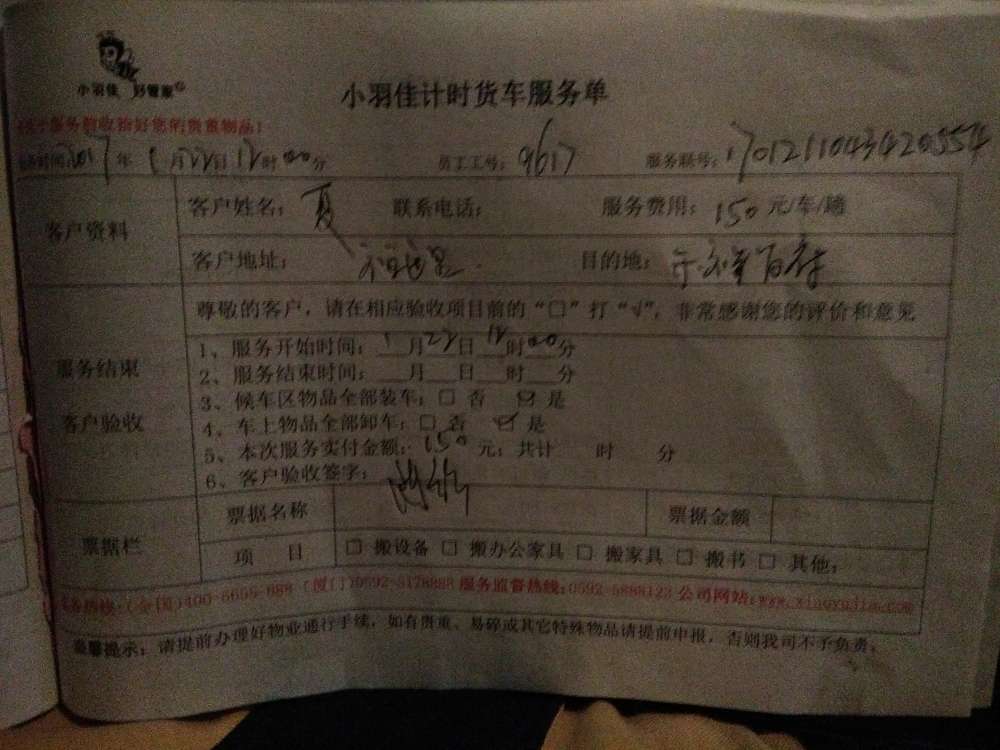 小羽佳 好管家
小羽佳计时货车服务单
服务前收拾好您的贵重物品！
务时间：2017年1月22日12时00分 员工工号：9617 服务联号：1701211043420554
客户资料
客户姓名：夏 联系电话： 服务费用：150元/车/趟
客户地址： 目的地：
尊敬的客户，请在相应验收项目前的“□”打“√”，非常感谢您的评价和意见
服务结束
客户验收
1、服务开始时间：1月22日12时00分
2、服务结束时间：__月__日__时__分
3、候车区物品全部装车：□ 否 ☑ 是
4、车上物品全部卸车：□ 否 ☑ 是
5、本次服务实付金额：150元；共计 时 分
6、客户验收签字：
票据栏
票据名称 票据金额
项 目 □ 搬设备 □ 搬办公家具 □ 搬家具 □ 搬书 □ 其他：
服务热线：(全国)400-6695-988 (厦门)0592-5178888 服务监督热线：0592-5888123 公司网站：www.xiaoyujia.com
温馨提示：请提前办理好物业通行手续，如有贵重、易碎或其它特殊物品请提前申报，否则我司不予负责。